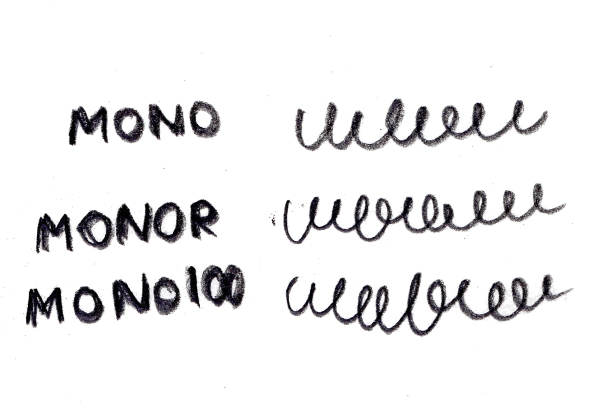 MONO
MONOR
MONO100